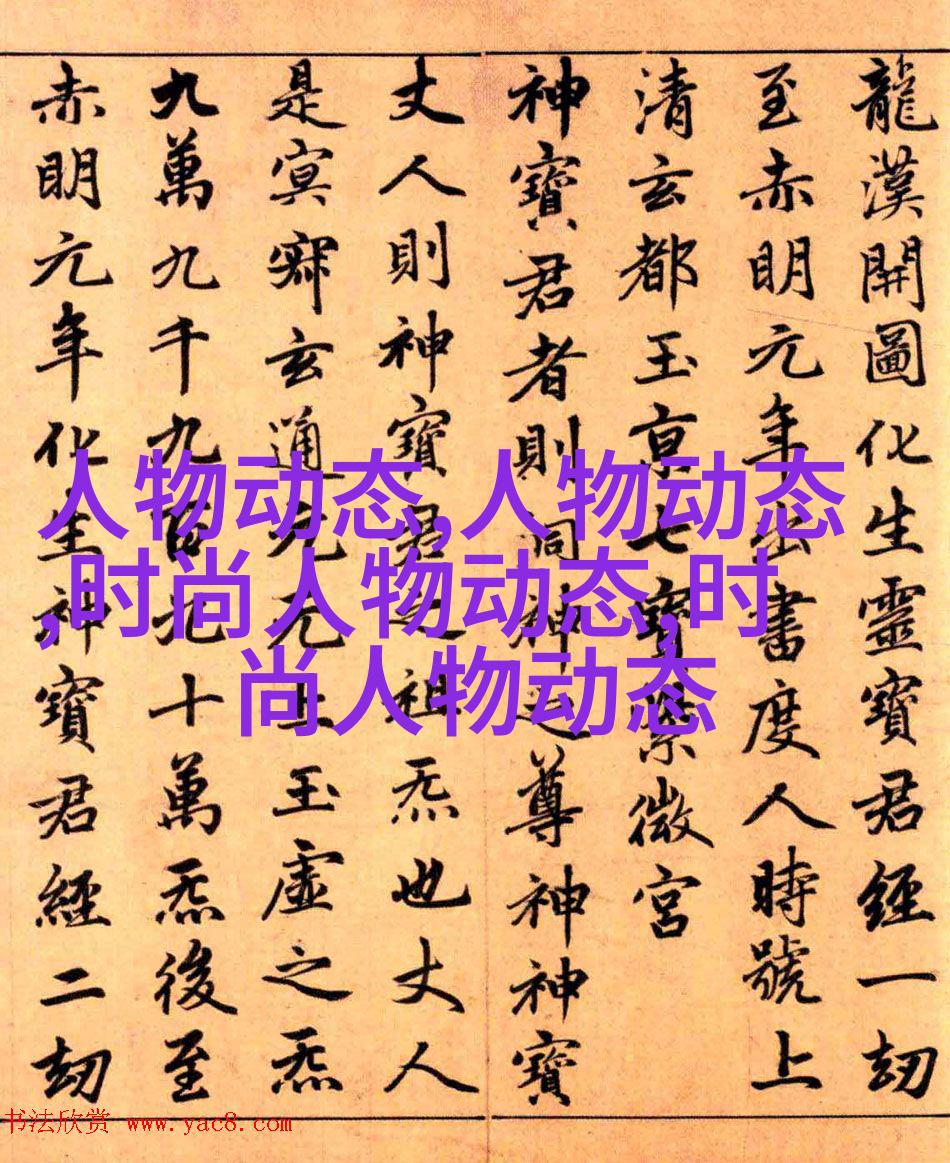 龍漢開圖化生靈寶君經一劫
至赤明元年出書度人時號上
清玄都玉京七寶紫微宮
神寶君者則洞神之尊神神寶
丈人則神寶君之祖炁也丈人
是冥寂玄通元无上玉虛之炁
九萬九千九百九十萬炁後至
赤明元年化生神寶君經二劫
人物动态,人物动态
,时尚人物动态,时
尚人物动态
书法欣赏 www.yac8.com